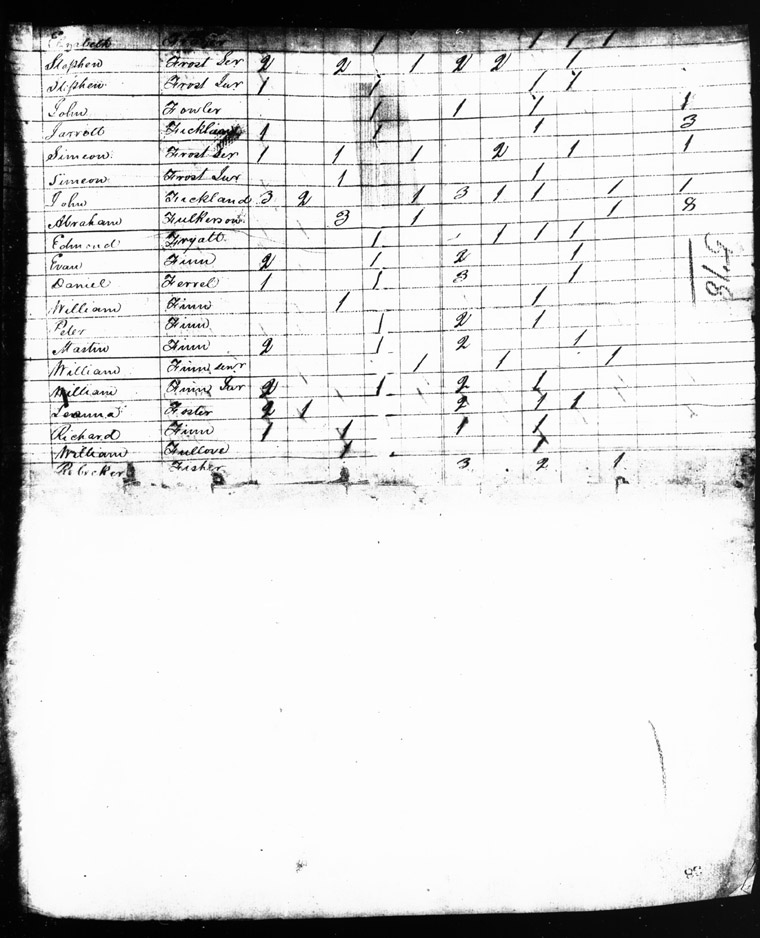 Elizabeth 1 1 1 1
Stephen Frost Ser 2 2 1 2 2 1
Stephen Frost Jur 1 1 1 1
John Fowler 1 1 1 1
Jarrott Fickland 1 1 1 3
Simeon Frost Ser 1 1 1 2 1 1
Simeon Frost Jur 1 1
John Fickland 3 2 1 3 1 1 1 1
Abraham Fulkerson 3 1 1 8
Edmond Fryatt 1 1 1 1
Evan Finn 2 1 2 1
Daniel Ferrel 1 1 3 1
William Finn 1 1
Peter Finn 1 2 1
Martin Finn 2 1 2 1
William Finn senr 1 1 1
William Finn Jur 2 1 2 1
Leanna Foster 2 1 2 1 1
Richard Finn 1 1 1 1
William Fullove 1 1
Fisher 3 2 1